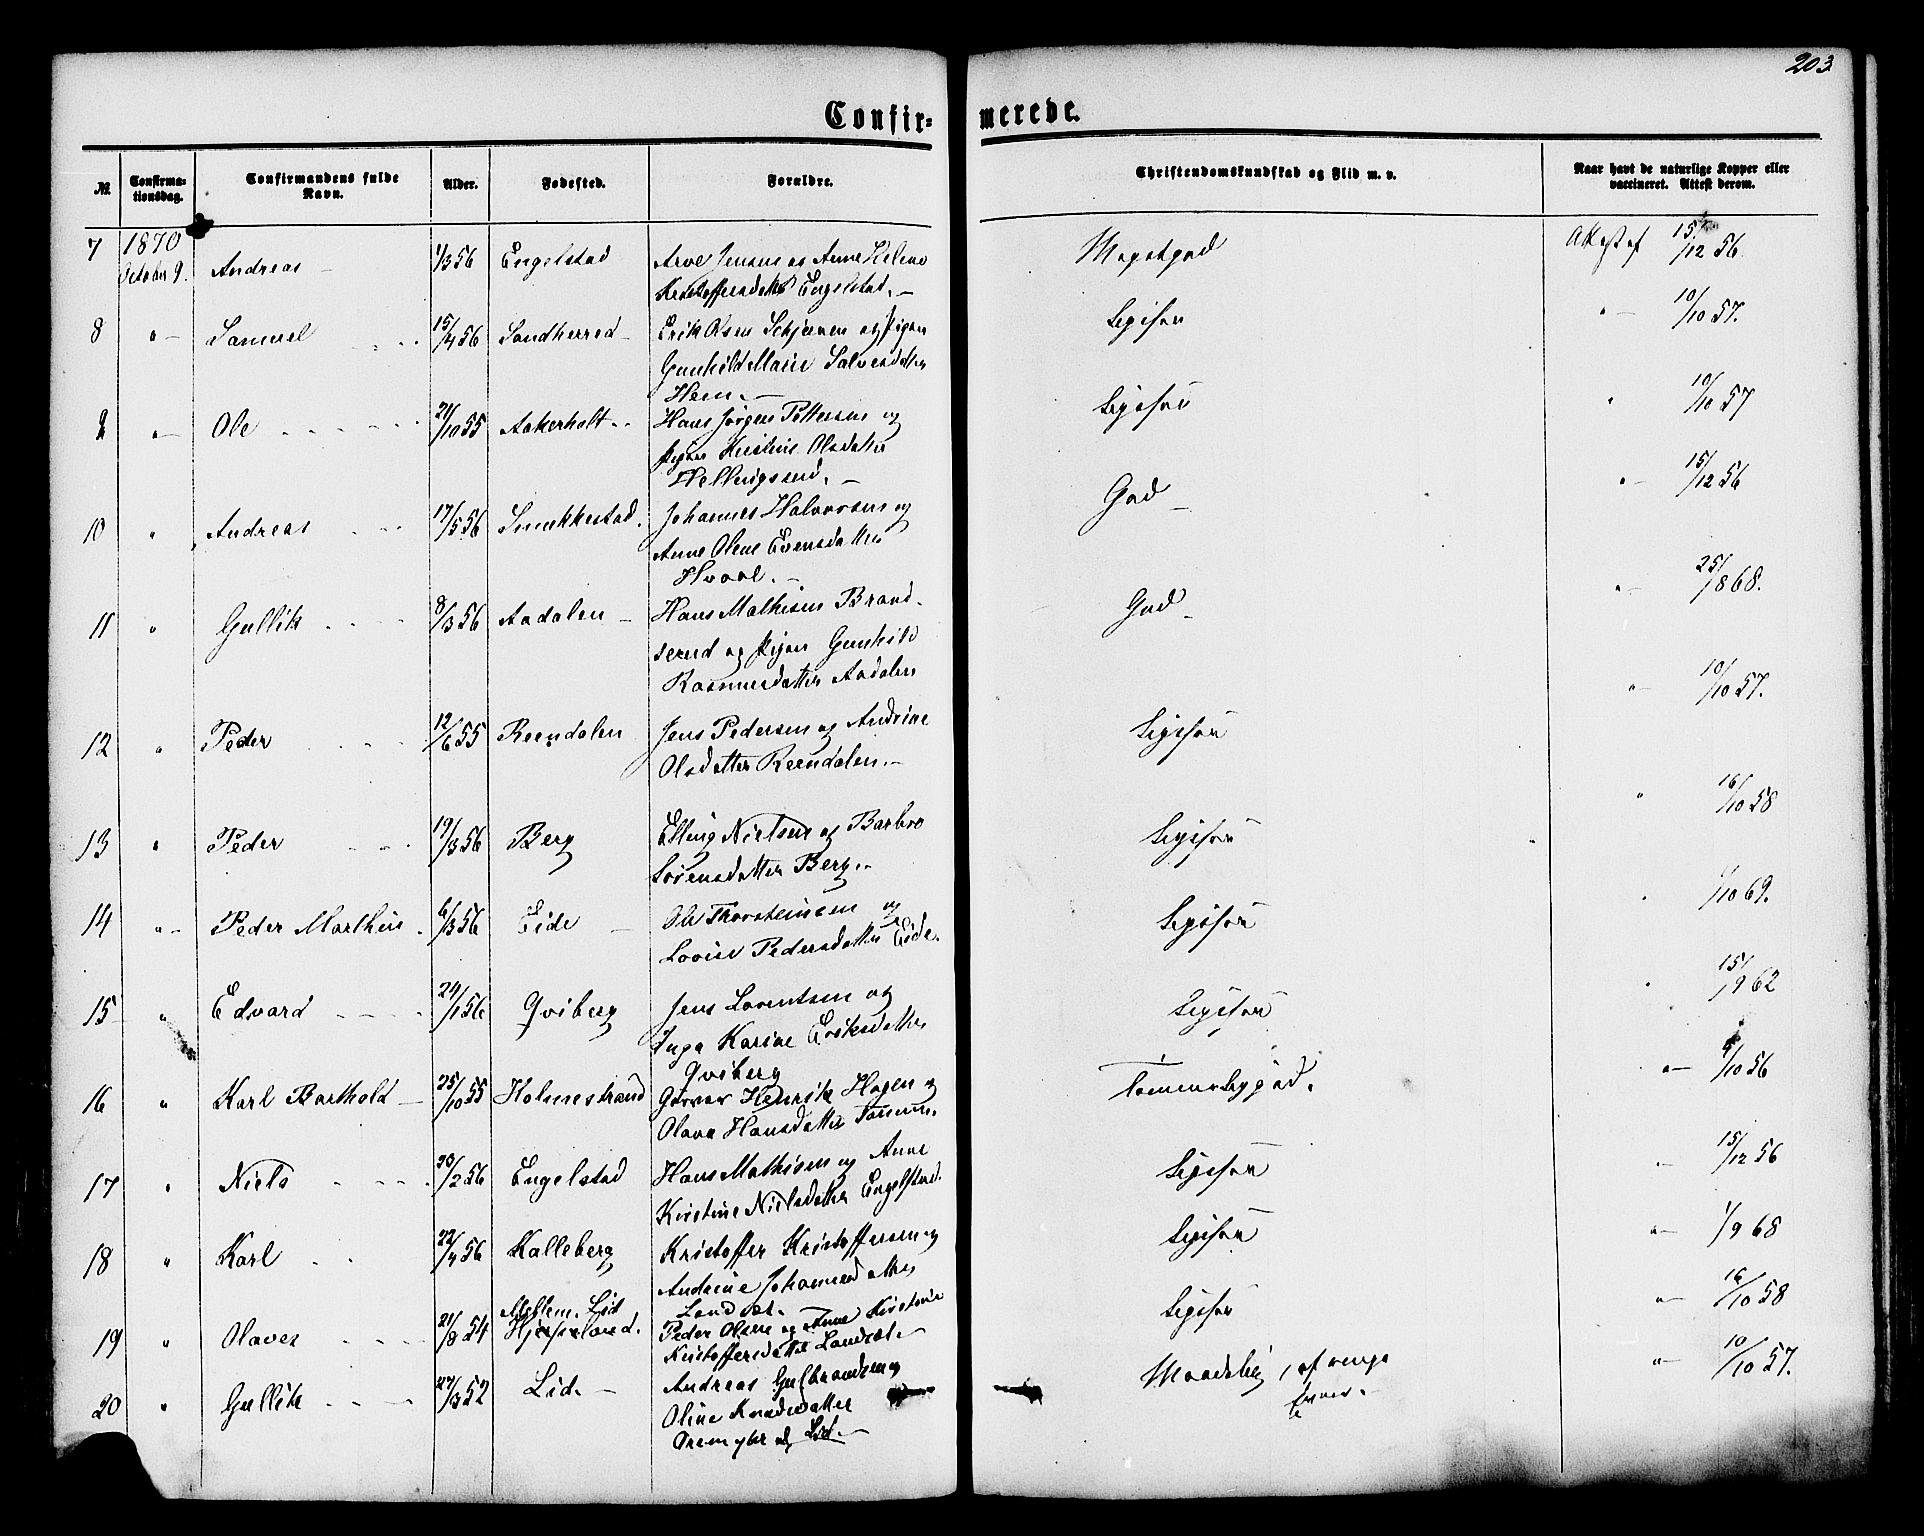 203
Confir- merede.
№ Confirma- Confirmandens fulde Alder. Fødested. Forældre. Christendomskundskab og Flid m. v. Naar havt de naturlige Kopper eller
tionsdag. Navn. vaccineret. Attest derom.
7 1870 October 9. Andreas 1/3 56 Engelstad Arve Jensen og Anne Helene Megetgod Attest af 15/12 56
Kristoffersdatter Engelstad.
8 " Samuel 15/4 56 Sandherred Erik Olsen Schjerven og Pigen 10/10 57.
Gunhild Marie Salvesdatter
Hem.
9 " Ole 21/10 55 Aakerholt Hans Jørgen Pettersen og " 10/10 57
Pigen Kirstine Olsdatter
Hellingsrud.
10 " Andreas 17/5 56 Smukkestad. Johannes Halvorsen og God " 15/12 56
Anne Olene Evensdatter
Hvaal.
11 " Gullik 8/3 56 Aadalen Hans Mathisen Brand- God " 25/8 68.
serud og Pigen Gunhild
Rasmusdatter Aadalen
12 " Peder 12/6 55 Reendalen Jens Pedersen og Andrine " 10/10 57.
Olsdatter Reendalen.
13 " Peder 19/3 56 Berg Elling Nielsen og Barbro " 16/10 58
Sørensdatter Berg.
14 " Peder Marthin 6/3 56 Eide Ole Thorsteinsen og " 1/10 69.
Lovise Pedersdatter Eide.
15 " Edvard 24/1 56 Qviberg Jens Lorentsen og " 15/9 62
Inga Karine Eriksdatter
Qviberg
16 " Karl Barthold 25/10 55 Holmestrand Garver Henrik Hagen og " /10 56
Olava Hansdatter
17 " Niels 20/2 56 Engelstad Hans Mathisen og Anne " 15/12 56
Kirstine Nielsdatter Engelstad.
18 " Karl 22/4 56 Kalleberg Kristoffer Kristoffersen og " 1/9 68
Andrine Johannesdatter
Landsæt.
19 " Olaves 21/8 54 Mellem Lid Peder Olsen og Anne Kirstine " 16/10 58
Kristoffersdatter Landsæt.
20 " Gullik 27/3 52 Lid. Andreas Gulbrandsen og Maadelig, af ringe " 10/10 57.
Oline Knudsdatter Evner.
Lid.